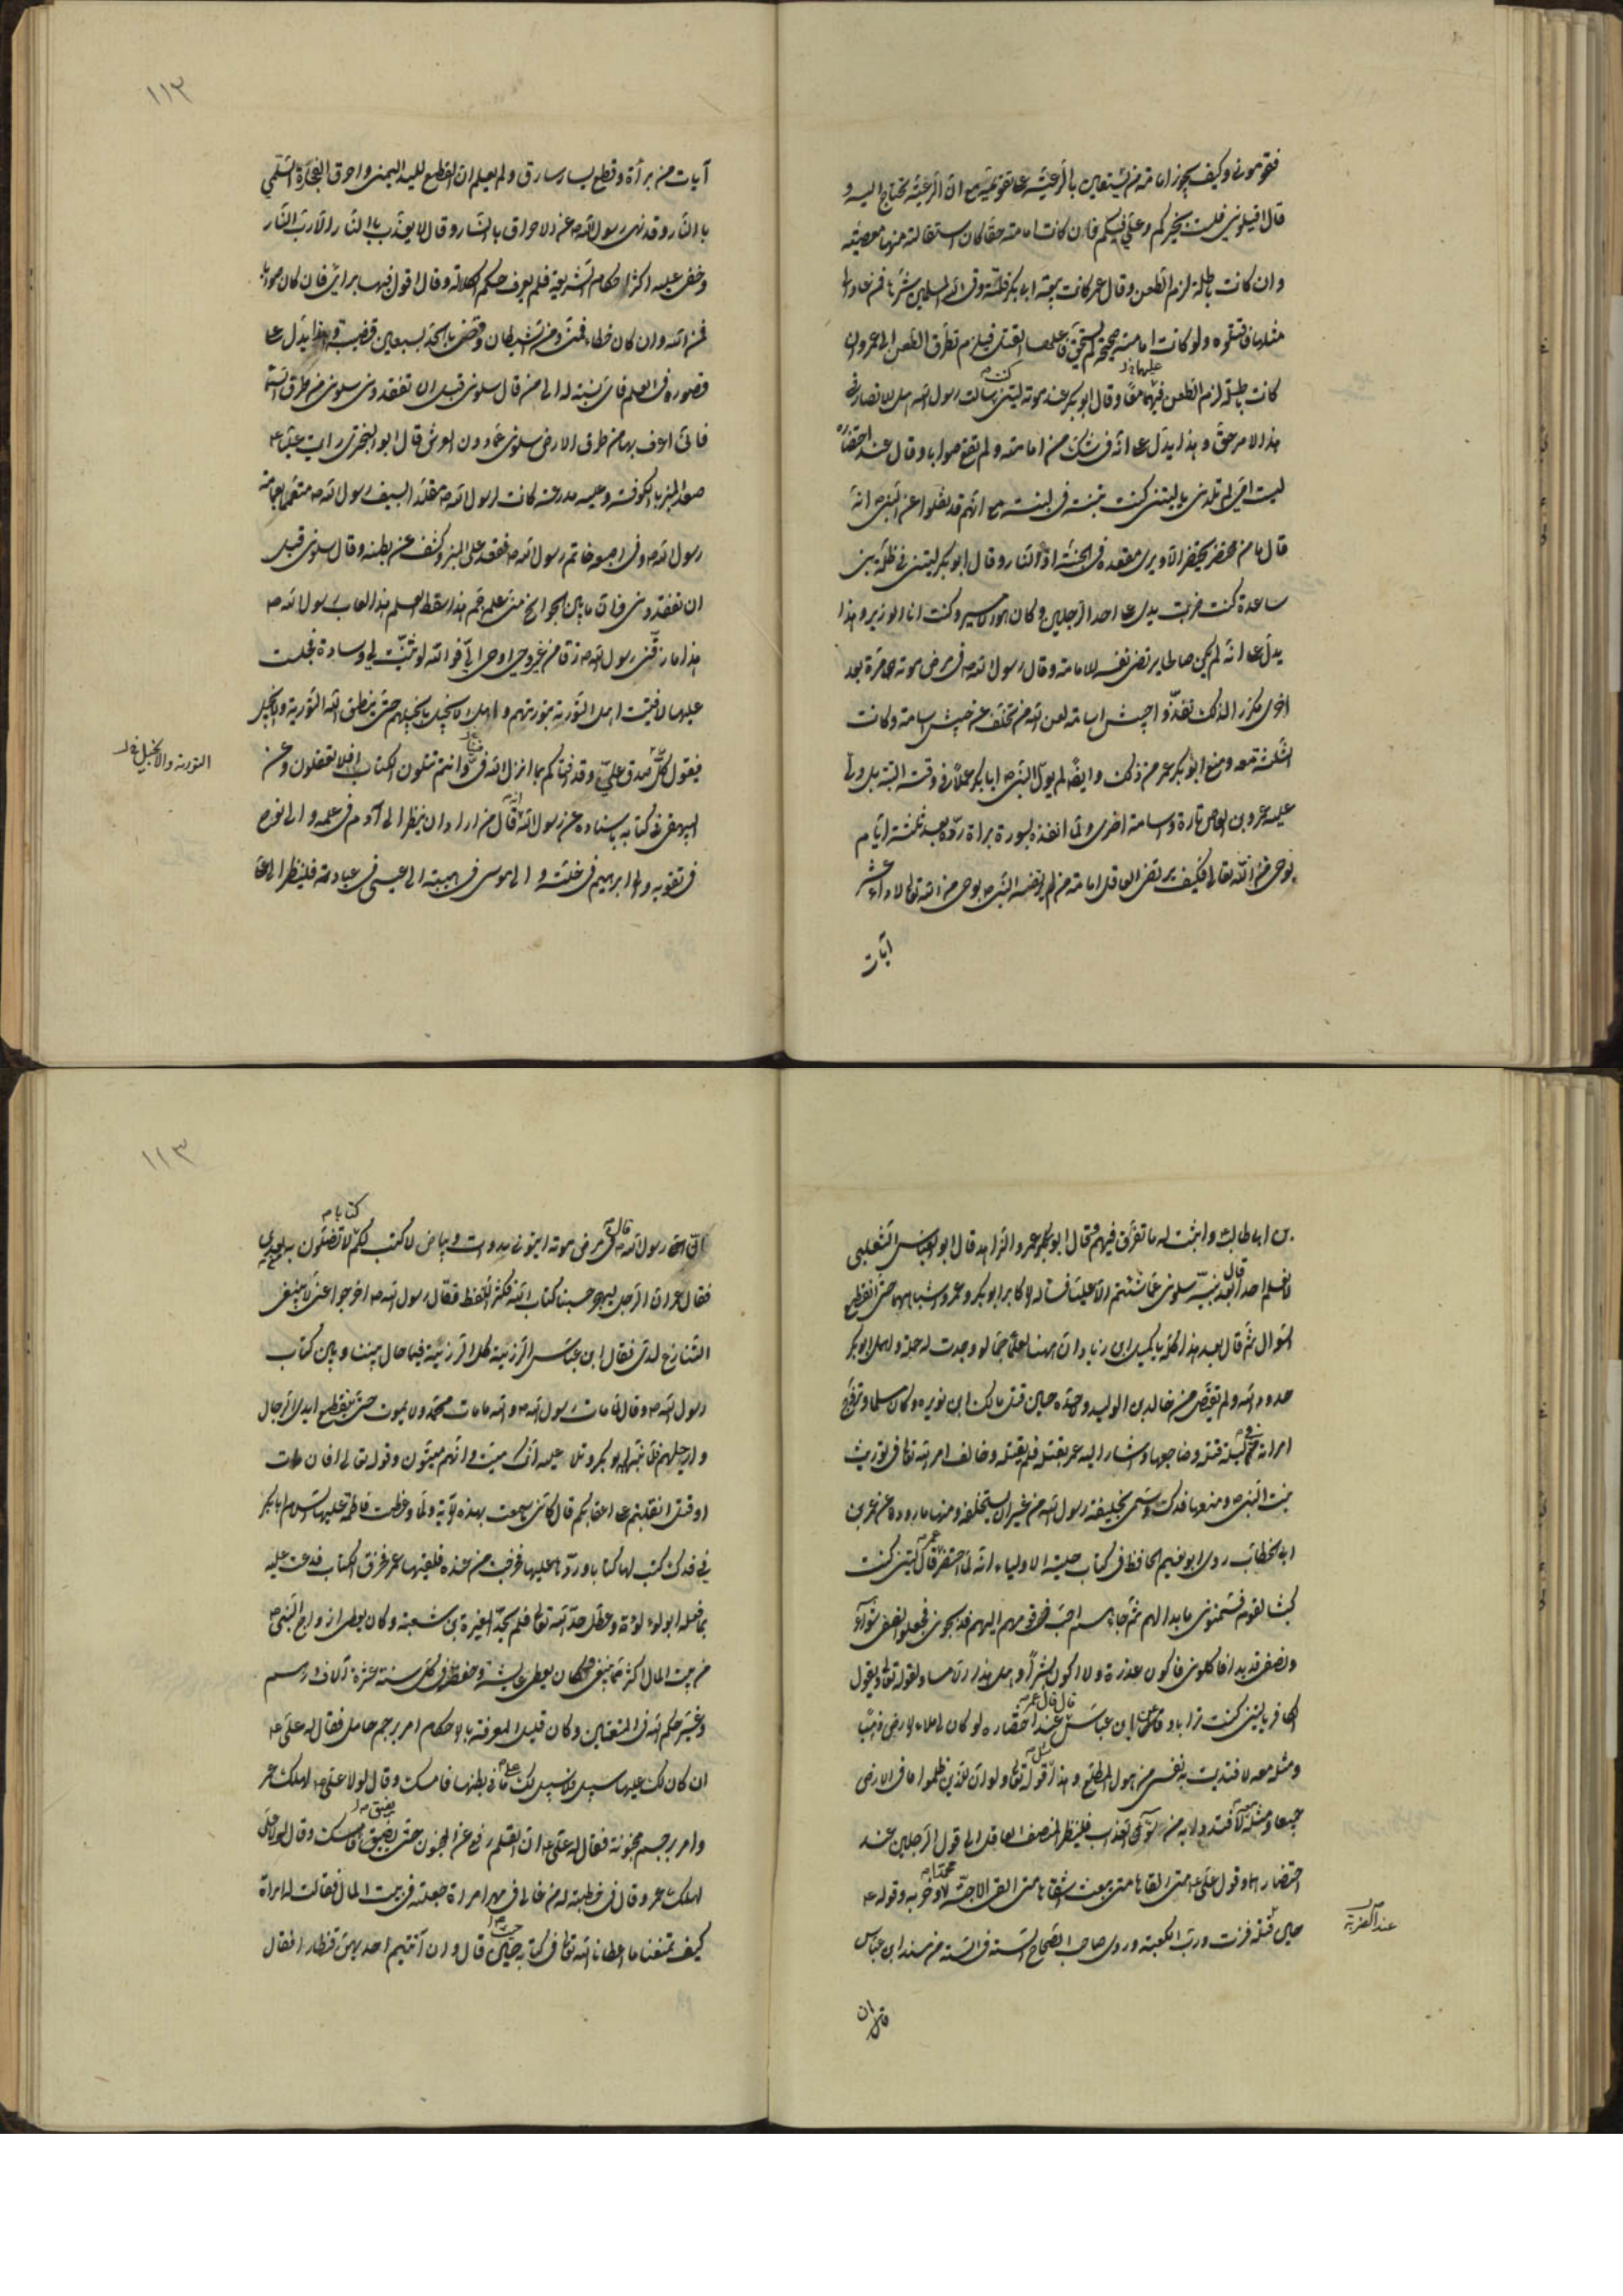 فقوموني وكيف يجوز امامة من يستعين بالرعية على تقويمه مع ان الرعية تحتاج اليه و
قال اقيلوني فلست بخيركم وعلي فيكم فان كانت امامته حقا كان استقالته منها معصية
وان كانت باطلة لزم الطعن وقال عمر كانت بيعة ابي بكر فلتة وقى الله المسلمين شرها فمن عاد الى
مثلها فاقتلوه ولو كانت امامته صحيحة لم يستحق فاعلها القتل فيلزم تطرق الطعن الى عمر وان
كانت باطلة لزم الطعن فيهما معا وقال ابو بكر عند موته ليتني كنت سالت رسول الله هل للانصار في
عليهما
هذا الامر حق وهذا يدل على انه في شك من امامته ولم تقع صوابا وقال عند احتضاره
ليت امي لم تلدني يا ليتني كنت تبنة في لبنة مع انهم قد نقلوا عن النبي ص انه
قال ما من محتضر يحتضر الا ويرى مقعده في الجنة او النار وقال ابو بكر ليتني في ظلة بني
ساعدة كنت ضربت يدي على احد الرجلين وكان هو الامير وكنت انا الوزير وهذا
يدل على انه لم يكن صالحا يرتضي نفسه للامامة وقال رسول الله ص في مرض موته مرة بعد
اخرى مكررا لذلك نفذوا جيش اسامة لعن الله من تخلف عن جيش اسامة وكانت
الثلثة معه ومنع ابو بكر عمر من ذلك وايضا لم يول النبي ص ابا بكر عملا في وقته البتة بل ولى
عليه عمرو بن العاص تارة واسامة اخرى ولما انفذه بسورة براة رده بعد ثلثة ايام
بوحي من الله تعالى فكيف يرتضي العاقل امامة من لم يرتضه النبي ص بوحي من الله تعالى لاداء عشر
آيات
١١٢
آيات من برأة وقطع يسار سارق ولم يعلم ان القطع لليد اليمنى واحرق الفجاءة السلمي
بالنار وقد نهى رسول الله ص عن الاحراق بالنار وقال لا يعذب بالنار الا رب النار
وخفى عليه اكثر احكام الشريعة فلم يعرف حكم الكلالة وقال اقول فيها برأيي فان كان صوابا
فمن الله وان كان خطاء فمني ومن الشيطان وقضى في الجد بسبعين قضية وهذا يدل على
قصوره في العلم فاي نسبة له الى من قال سلوني قبل ان تفقدوني سلوني من طرق السماء
فاني اعرف بها من طرق الارض سلوني عما دون العرش قال ابو البختري رايت عليا ع
صعد المنبر بالكوفة وعليه مدرعة كانت لرسول الله ص متقلدا بسيف رسول الله ص متعمما بعمامة
رسول الله ص وفي اصبعه خاتم رسول الله ص فقعد على المنبر وكشف عن بطنه وقال سلوني قبل
ان تفقدوني فان ما بين الجوانح مني علم جم هذا سقط العلم هذا لعاب رسول الله ص
هذا ما زقني رسول الله ص زقا من غير وحي اوحي الي فوالله لو ثنيت لي وسادة فجلست
عليها لافتيت اهل التورية بتوريتهم واهل الانجيل بانجيلهم حتى ينطق الله التورية والانجيل
التورية والانجيل
فيقول كل صدق علي وقد افتاكم بما انزل الله في وانتم تتلون الكتاب افلا تعقلون وعن
البيهقي في كتابه باسناده عن رسول الله ص انه قال من اراد ان ينظر الى آدم في علمه والى نوح
في تقويه والى ابرهيم في خلته والى موسى في هيبته والى عيسى في عبادته فلينظر الى علي
بن ابي طالب واثبت له ما تفرق فيهم وقال ابو عمرو الزاهد قال ابو العباس الثعلبي
لا نعلم احدا قال بعد نبيه سلوني عما شئتم الا عليا فساله الاكابر ابو بكر وعمر واشباههما حتى انقطع
السؤال ثم قال بعد هذا كله يا كميل ابن زياد ان ههنا لعلما جما لو وجدت له حملة واهمل ابو بكر
حدود الله ولم يقتص من خالد بن الوليد ولا حده حين قتل مالك ابن نويره وكان مسلما وتزوج
امراته في ليلة قتله وضاجعها واشار اليه عمر بقتله فلم يقتله وخالف امر الله تعالى في توريث
بنت النبي ص ومنعها فدك وتسمى بخليفة رسول الله من غير ان يستخلفه ومنها ما رووه عن عمر بن
الخطاب روى ابو نعيم الحافظ في كتاب حلية الاولياء انه لما احتضر عمر قال ليتني كنت
كبشا لقومي فسمنوني ما بدا لهم ثم جاءهم احب قومهم اليهم فذبحوني فجعلوا نصفي شواء
ونصفي قديدا فاكلوني فاكون عذرة ولا اكون بشرا وهل هذا الا مساو لقوله تعالى ويقول
الكافر يا ليتني كنت ترابا وقال ابن عباس قال عمر عند احتضاره لو كان لي ملاء الارض ذهبا
ومثله معه لافتديت به نفسي من هول المطلع وهذا مثل قوله تعالى ولو ان للذين ظلموا ما في الارض
جميعا ومثله معه لافتدوا به من سوء العذاب فلينظر المنصف العاقل الى قول الرجلين عند
احتضارهما وقول علي ع متى القاها متى يبعث اشقاها متى القى الاحبة محمدا وحزبه وقوله ع
حين قتله فزت ورب الكعبة وروى صاحب الصحاح الستة في الستة من مسند ابن عباس
عند الضربة
ان
١١٣
ان رسول الله ص قال في مرض موته ايتوني بدوات وبياض لاكتب لكم كتابا لا تضلون به بعدي
فقال عمر ان الرجل ليهجر حسبنا كتاب الله فكثر اللغط فقال رسول الله ص اخرجوا عني لا ينبغي
التنازع لدي فقال ابن عباس الرزية كل الرزية فيما حال بيننا وبين كتاب
رسول الله ص وقال لما مات رسول الله ص والله ما مات محمد ولا يموت حتى يقطع ايدي الرجال
وارجلهم فلما نبهه ابو بكر وتلا عليه انك ميت وانهم ميتون وقوله تعالى افان مات
او قتل انقلبتم على اعقابكم قال كاني ما سمعت بهذه الآية ولما وعظت فاطمة عليها السلام ابا بكر
في فدك كتب لها كتابا وردها عليها فخرجت من عنده فلقيها عمر فخرق الكتاب فدعت عليه
بما فعله ابو لؤلؤة وعطل حد الله تعالى فلم يحد المغيرة بن شعبة وكان يعطي ازواج النبي ص
من بيت المال اكثر مما ينبغي فكان يعطي عايشة وحفصة في كل سنة عشرة آلاف درهم
وغير حكم الله في المتعتين وكان قليل المعرفة بالاحكام امر برجم حامل فقال له علي ع
ان كان لك عليها سبيل فلا سبيل لك على ما في بطنها فامسك وقال لولا علي لهلك عمر
وامر برجم مجنونة فقال له علي ع ان القلم رفع عن المجنون حتى يفيق فامسك وقال لولا علي
لهلك عمر وقال في خطبة له من غالى في مهر امراة جعلته في بيت المال فقالت له امراة
كيف تمنعنا ما اعطانا الله تعالى في كتابه حين قال وان آتيتم احديهن قنطارا فقال